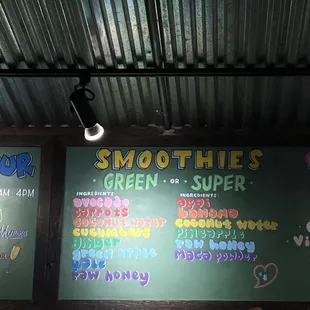 SMOOTHIES
GREEN - OR - SUPER
INGREDIENTS:
avocado
carrots
coconut water
cucumbers
ginger
green apple
kale
raw honey
INGREDIENTS:
acai
banana
coconut water
pineapple
raw honey
maca powder
UR
AM 4PM
Vi